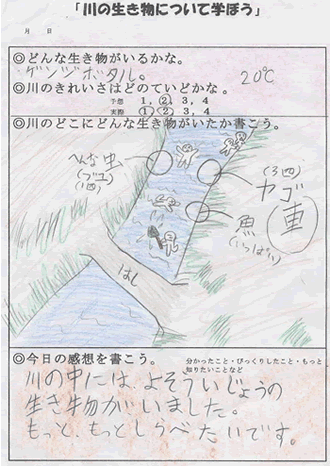 「川の生き物について学ぼう」
月 日
◎どんな生き物がいるかな。
ゲンジボタル。
20℃
◎川のきれいさはどのていどかな。
予想 1, 2, 3, 4
実際 1, 2, 3, 4
◎川のどこにどんな生き物がいたか書こう。
へんな虫
(3四)
カゴ
車
魚
(いっぱい)
はし
◎今日の感想を書こう。
分かったこと・びっくりしたこと・もっと
知りたいことなど
川の中には、よそういじょうの
生き物がいました。
もっと、もっとしらべたいです。